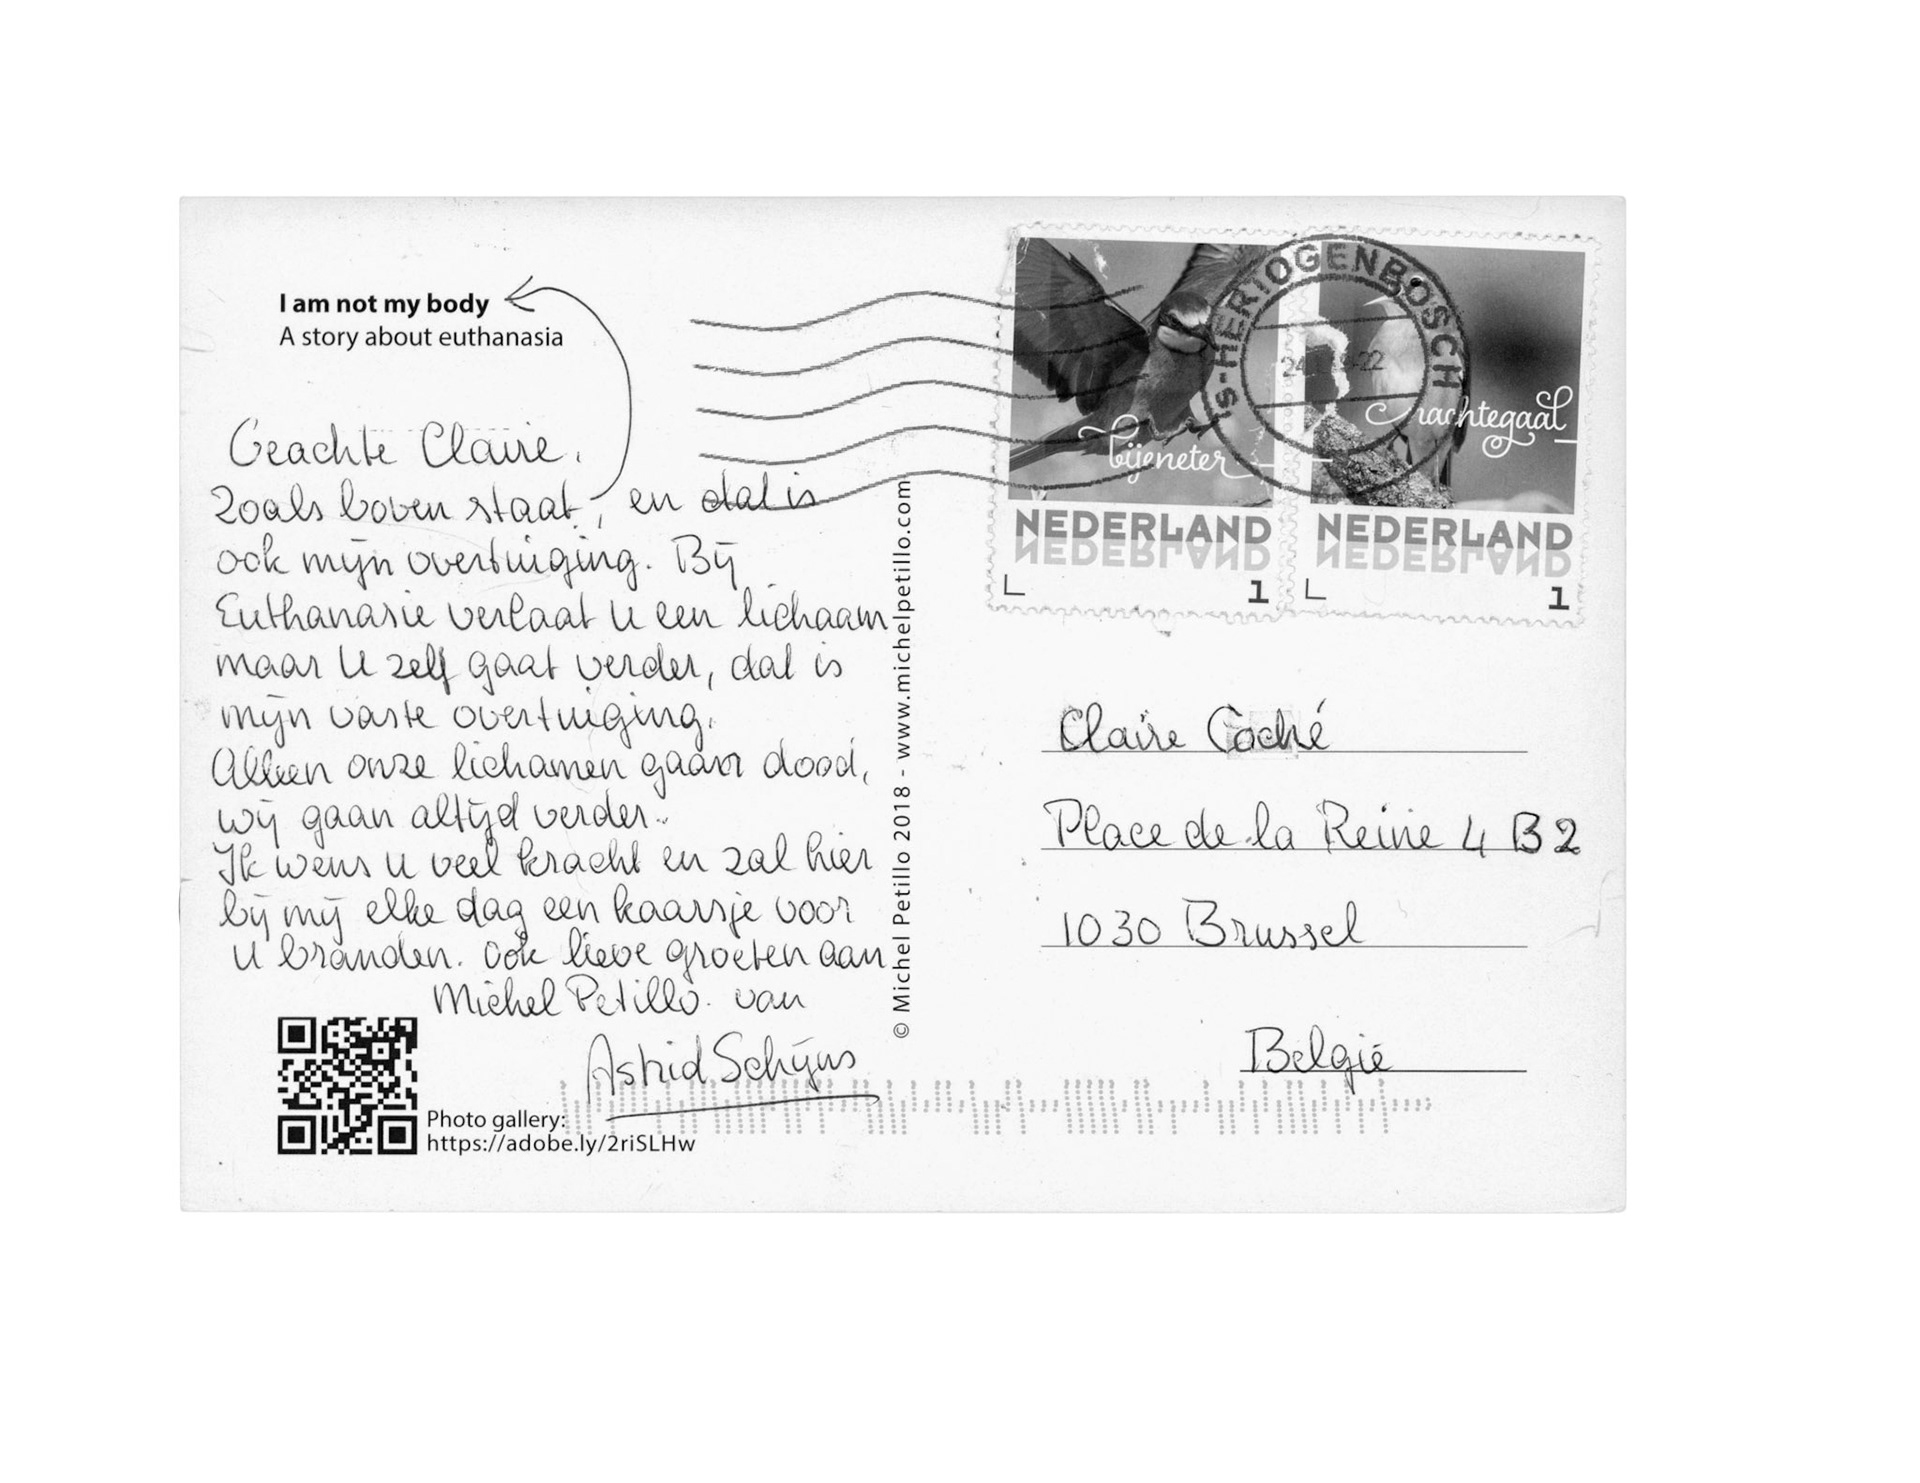 I am not my body
A story about euthanasia
Geachte Claire,
Zoals boven staat, en dat is
ook mijn overtuiging. Bij
Euthanasie verlaat U een lichaam
maar U zelf gaat verder, dat is
mijn vaste overtuiging.
Alleen onze lichamen gaan dood,
wij gaan altijd verder.
Ik wens u veel kracht en zal hier
bij mij elke dag een kaarsje voor
U branden. Ook lieve groeten aan
Michel Petillo. van
Astrid Schijns
Photo gallery:
https://adobe.ly/2riSLHw
© Michel Petillo 2018 - www.michelpetillo.com
's-HERTOGENBOSCH
bijeneter
nachtegaal
NEDERLAND
1
NEDERLAND
1
Claire Coché
Place de la Reine 4 B2
1030 Brussel
België